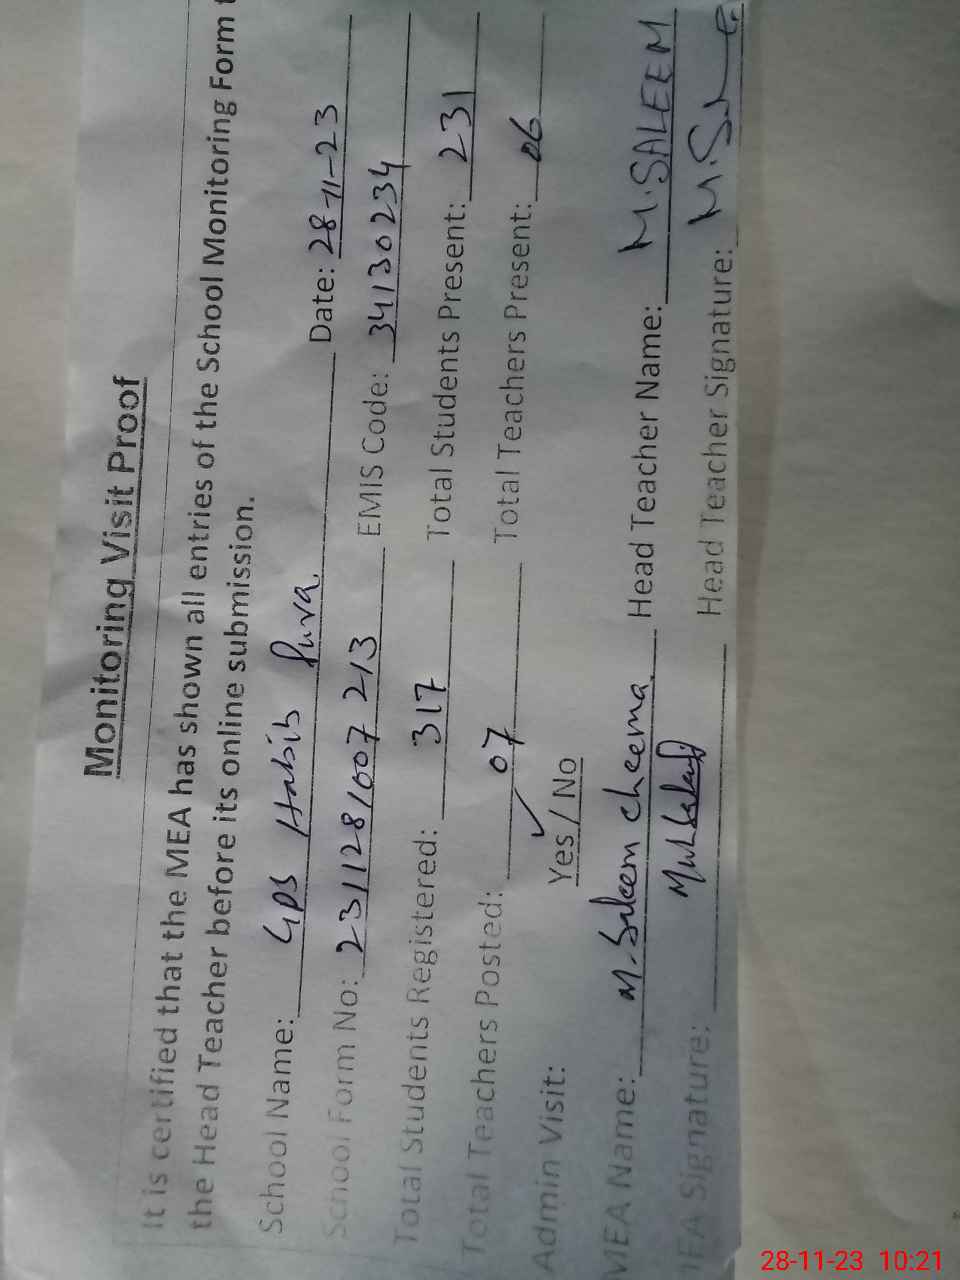 Monitoring Visit Proof
It is certified that the MEA has shown all entries of the School Monitoring Form t
the Head Teacher before its online submission.
School Name: GPS Habib Pura Date: 28-11-23
School Form No: 2311281007213 EMIS Code: 34130234
Total Students Registered: 317 Total Students Present: 231
Total Teachers Posted: 07 Total Teachers Present: 06
Admin Visit: Yes / No
MEA Name: M. Saleem cheema Head Teacher Name: M.SALEEM
MEA Signature: Head Teacher Signature:
28-11-23 10:21